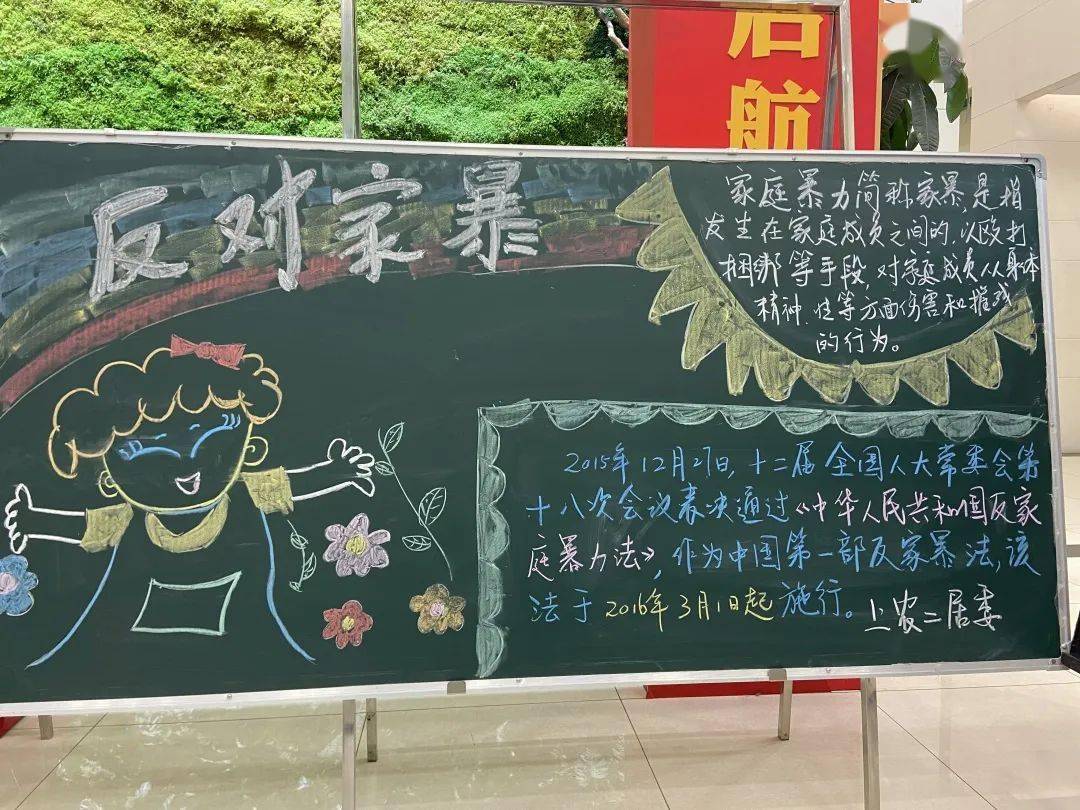 启航
反对家暴
家庭暴力简称家暴,是指
发生在家庭成员之间的,以殴打
捆绑等手段,对家庭成员从身体
精神、性等方面伤害和摧残
的行为。
2015年12月27日,十二届全国人大常委会第
十八次会议表决通过《中华人民共和国反家
庭暴力法》,作为中国第一部反家暴法,该
法于2016年3月1日起施行。
上农二居委